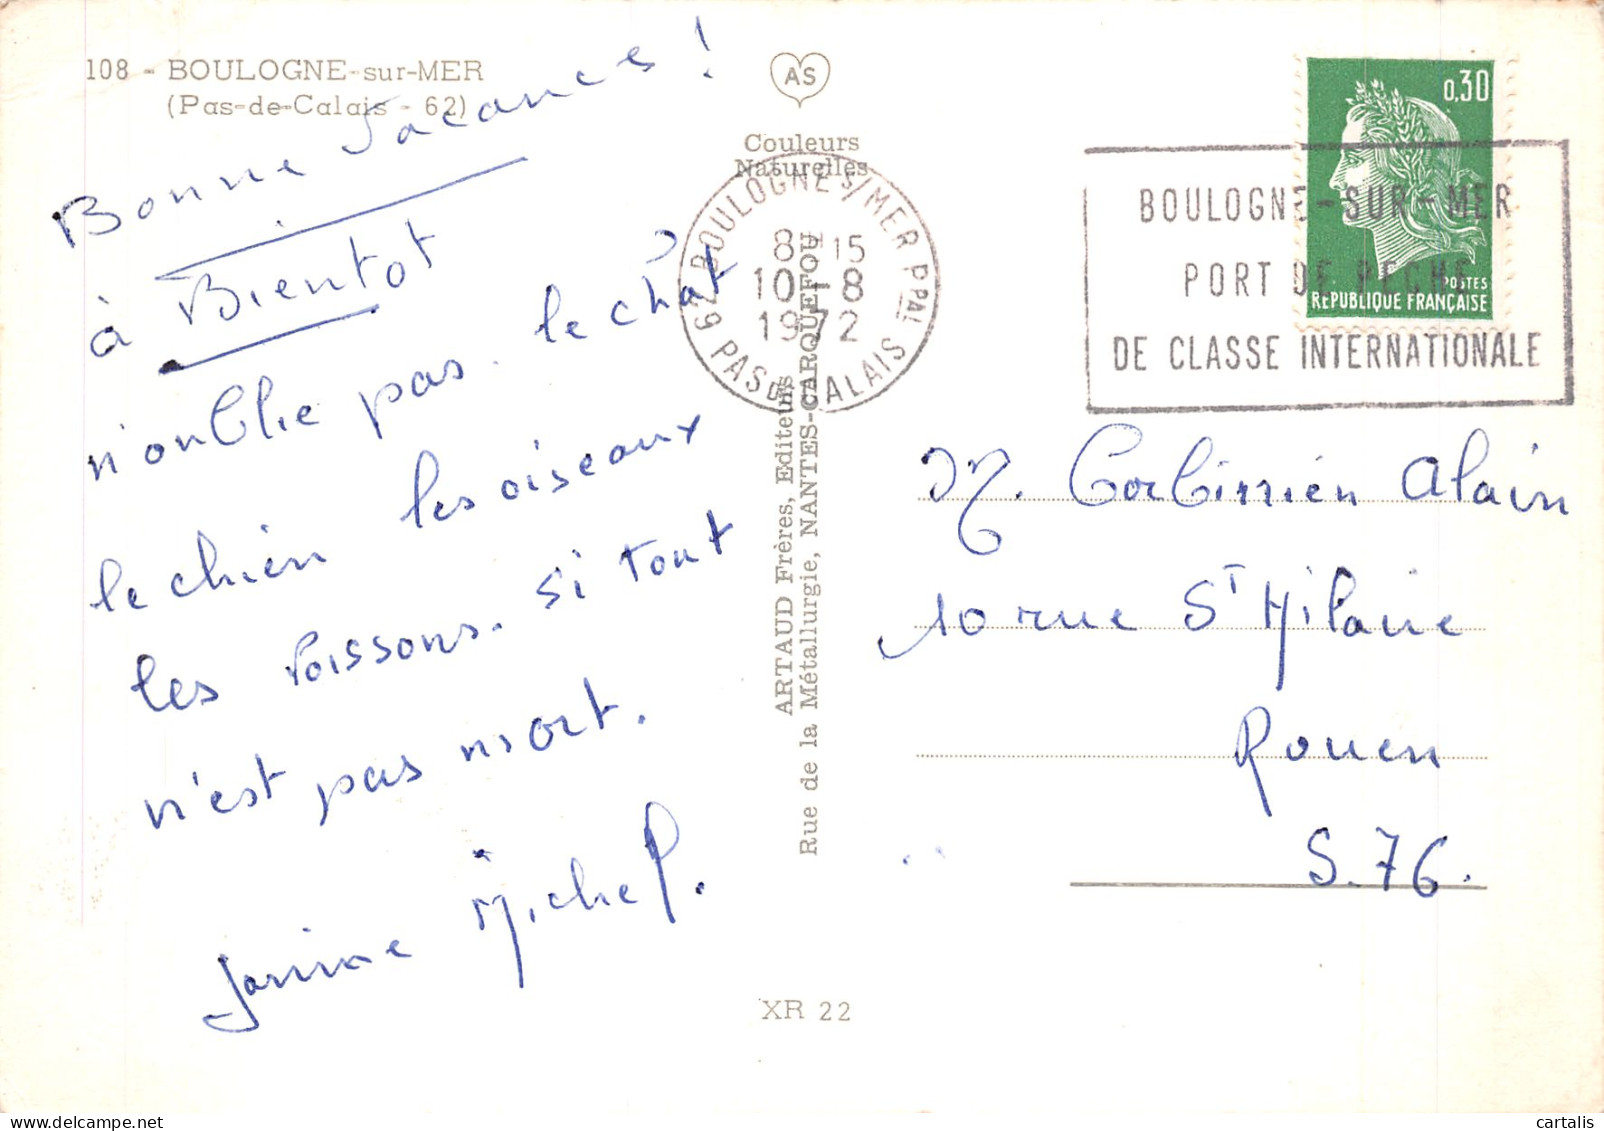 108 - BOULOGNE-sur-MER
(Pas-de-Calais - 62)
Bonne Vacances !
à Bientot
n'oublie pas le chat
le chien les oiseaux
les Poissons. si tout
n'est pas mort.
Janine Michel.
AS
Couleurs
Naturelles
62 BOULOGNE S/MER PPAL
8 H15
10-8
1972
PAS DE CALAIS
ARTAUD Frères, Editeurs
Rue de la Métallurgie, NANTES-CARQUEFOU
XR 22
0,30
POSTES
REPUBLIQUE FRANÇAISE
BOULOGNE-SUR-MER
PORT DE PECHE
DE CLASSE INTERNATIONALE
M. Corbinien Alain
10 rue St Hilaire
Rouen
S. 76.
cartalis
cartorum